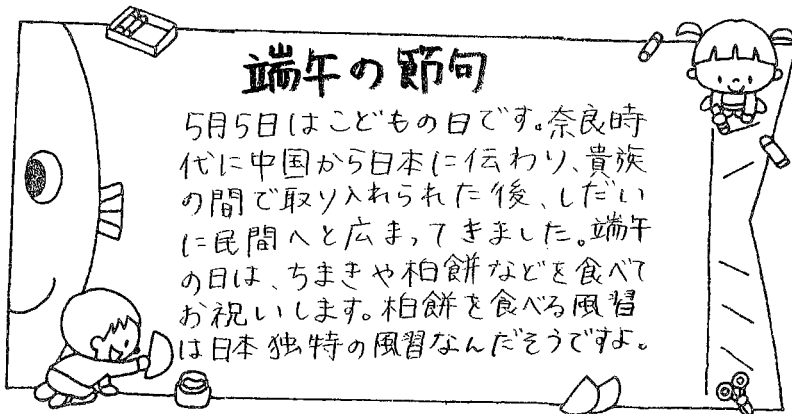 端午の節句
5月5日はこどもの日です。奈良時
代に中国から日本に伝わり、貴族
の間で取り入れられた後、しだい
に民間へと広まってきました。端午
の日は、ちまきや柏餅などを食べて
お祝いします。柏餅を食べる風習
は日本独特の風習なんだそうですよ。